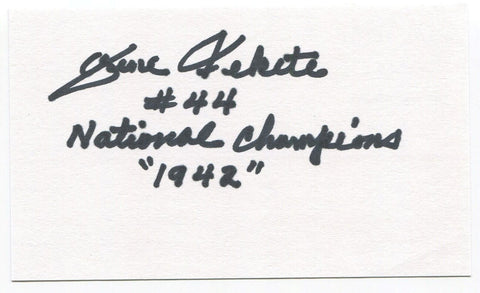 Gene Fekete
#44
National Champions
"1942"